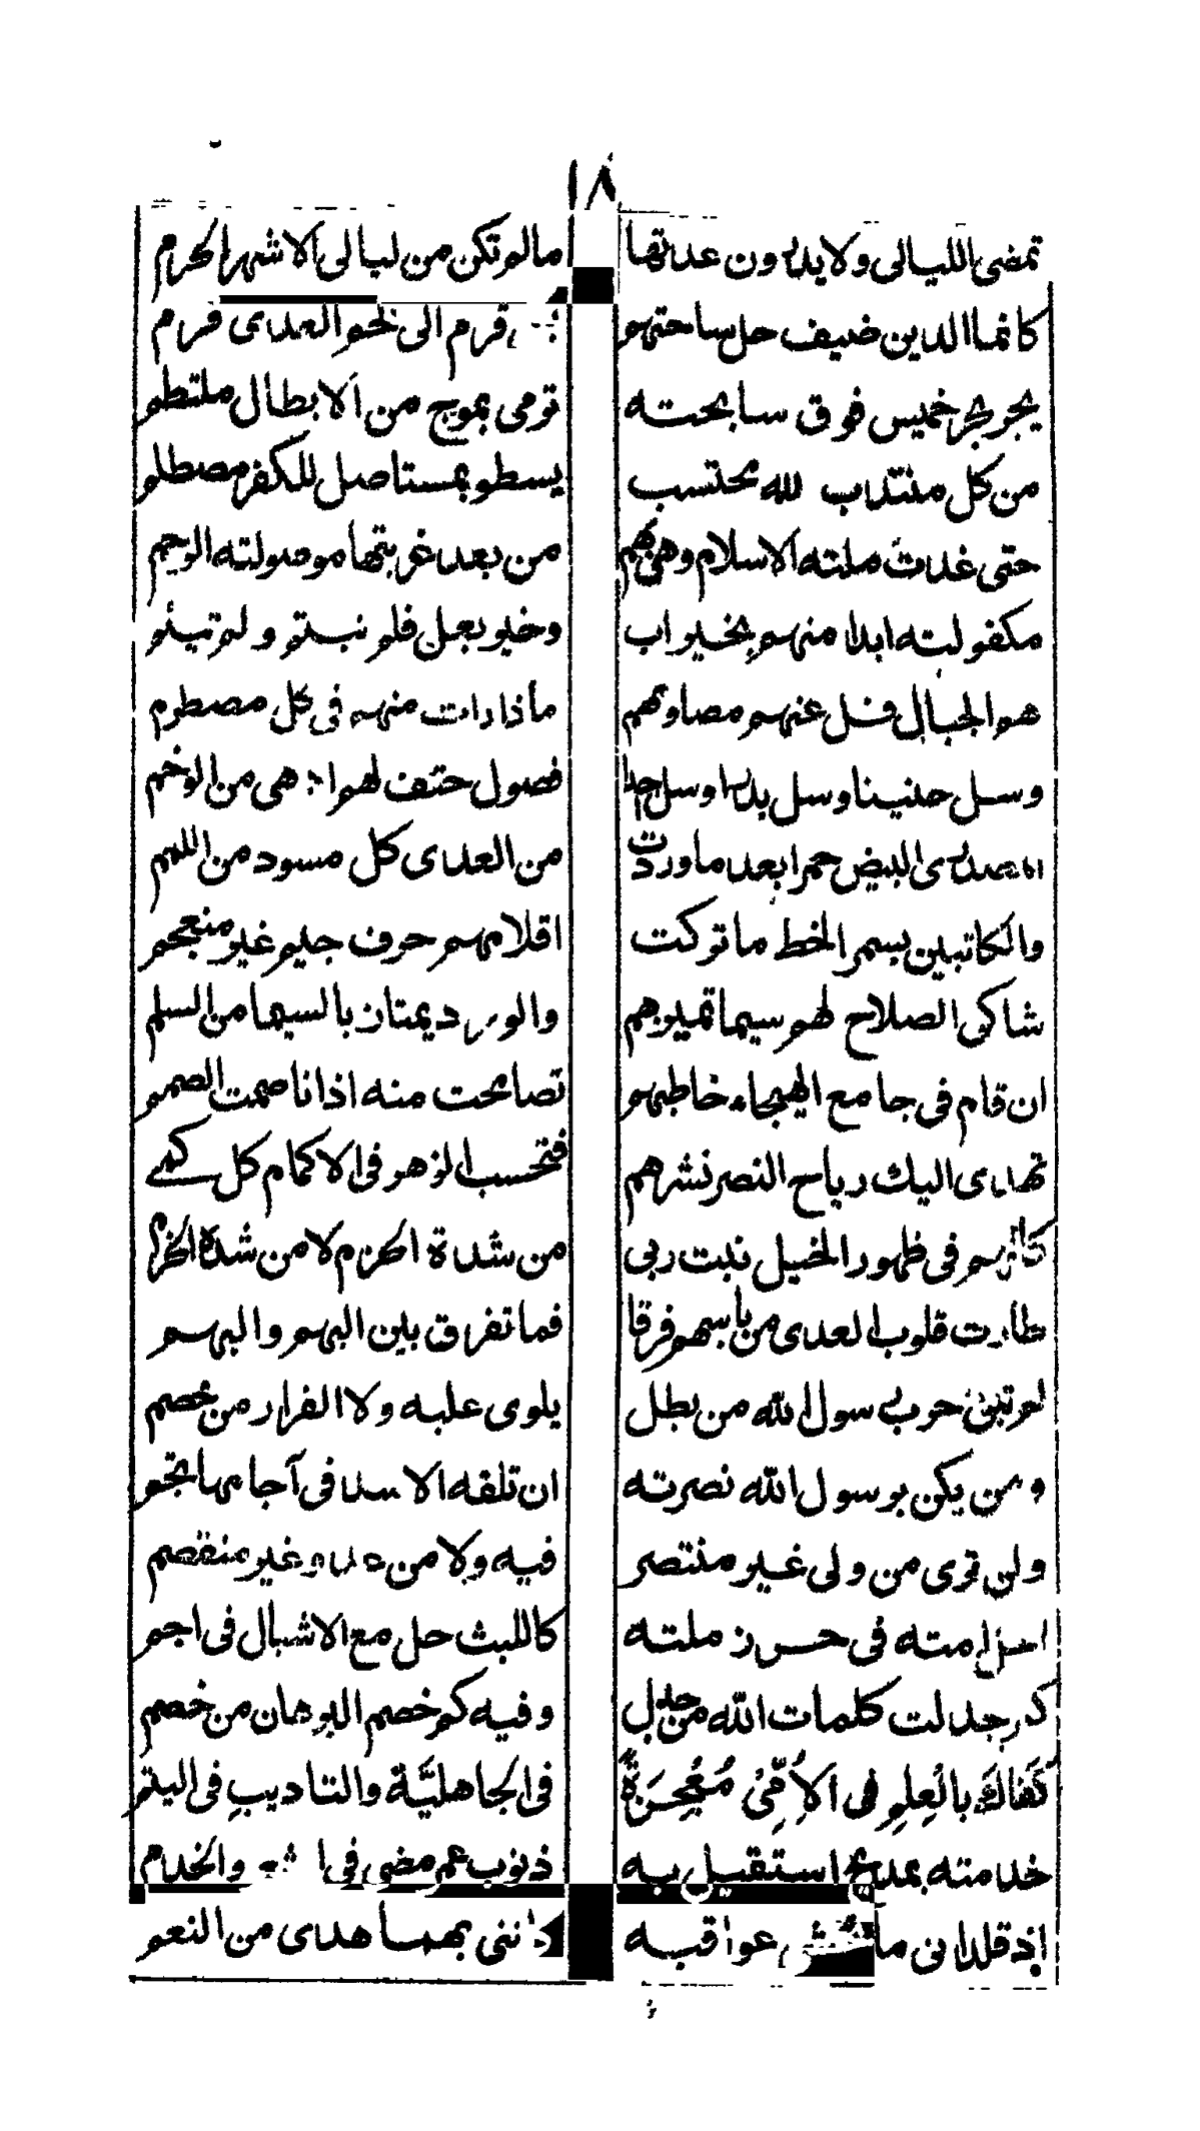 ١٨
تمضى الليالى ولا يدرون عدتها مالم تكن من ليالى الاشهر الحرم
كانما الدين ضيف حل ساحتهم قرم الى لحم العدى قرم
يجر بحر خميس فوق سابحته ترمى بموج من الابطال ملتطم
من كل منتدب لله محتسب يسطو بمستاصل للكفر مصطلم
حتى غدت ملته الاسلام وهى بهم من بعد غربتها موصولته الرحم
مكفولته ابدا منهم بخير اب وخير بعل فلم تيتم ولم تيئم
هم الجبال فسل عنهم مصادمهم ماذا رات منهم فى كل مصطدم
وسل حنينا وسل بدرا وسل احدا فصول حتف لهم ادهى من الوخم
المصدرى البيض حمرا بعد ما وردت من العدى كل مسود من اللمم
والكاتبين بسمر الخط ما تركت اقلامهم حرف جيم غير منعجم
شاكى الصلاح لهم سيما تميزهم والورد يمتاز بالسيما من السلم
ان قام فى جامع الهيجاء خاطبهم تصامحت منه اذانا صمت الصمم
تهدى اليك رياح النصر نشرهم فتحسب الزهر فى الاكمام كل كمى
كانهم فى ظهور الخيل نبت ربى من شدة الحزم لا من شدة الحزم
طارت قلوب العدى من باسهم فرقا فما تفرق بين البهم والبهم
يلوى عليه ولا الفرار من خصم
ومن يكن برسول الله نصرته ان تلقه الاسد فى آجامها تجم
ولن ترى من ولى غير منتصر فيه ولا من عدو غير منقصم
احل امته فى حرز ملته كالليث حل مع الاشبال فى اجم
كم جدلت كلمات الله من جدل وفيه كم خصم البرهان من خصم
كَفَاكَ بِالْعِلْمِ فى اَلْاُمِّىِّ مُعْجِزَةً فى الجاهليَّة والتاديبِ فى اليتم
خدمته بمديح استقيل به ذنوب عمر مضى فى الشعر والخدم
اذ قلدانى ما تخشى عواقبه كاننى بهما هدى من النعم